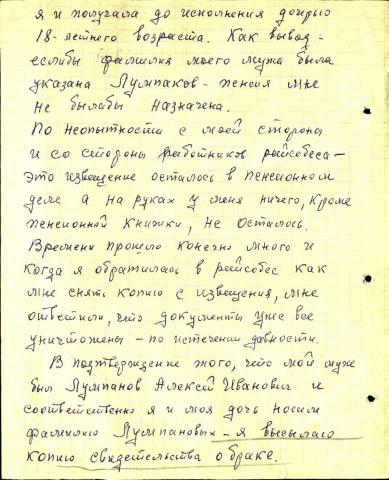 я и получала до исполнения дочерью
18-летнего возраста. Как вывод -
еслибы фамилия моего мужа была
указана Лумпаков - пенсия мне
не былабы назначена.
По неопытности с моей стороны
и со стороны работников райсобеса -
это извещение осталось в пенсионном
деле а на руках у меня ничего, кроме
пенсионной книжки, не осталось.
Времени прошло конечно много и
когда я обратилась в райсобес как
мне снять копию с извещения, мне
ответили, что документы уже все
уничтожены - по истечении давности.
В подтверждение этого, что мой муж
был Лумпанов Алексей Иванович и
соответственно я и моя дочь носим
фамилию Лумпановых - я высылаю
копию свидетельства о браке.